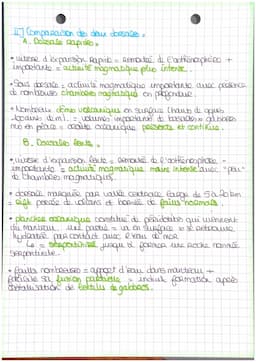 II] Comparaison des deux dorsales.
A. Dorsale rapide.
• vitesse d'expansion rapide = remontée de l'asthénosphère +
importante = activité magmatique plus intense.
• Sous dorsale = activité magmatique importante avec présence
de nombreuses chambres magmatiques en profondeur.
• Nombreux dôme volcanique en surface (hauts de
= volume important de basaltes + gabbros
mis en place = croûte océanique présente et continue.
B. Dorsale lente.
• vitesse d'expansion lente = remontée de l'asthénosphère -
importante = activité magmatique moins intense avec "peu"
de chambres magmatiques.
• dorsale marquée par vallée centrale large de 5 à 20 km
= peu de volcans et bordée de failles normales.
• plancher océanique constitué de péridotites qui viennent
du manteau. une partie va en surface = se retrouve
hydratée par contact avec l'eau de mer
= serpentinisé jusqu'à former une roche nommée
serpentinite.
• failles nombreuses = apport d'eau dans manteau +
facilite sa fusion partielle = formation après
cristallisation de gabbros.